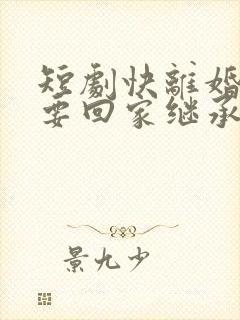 短劇快離婚
要回家继承
景九少